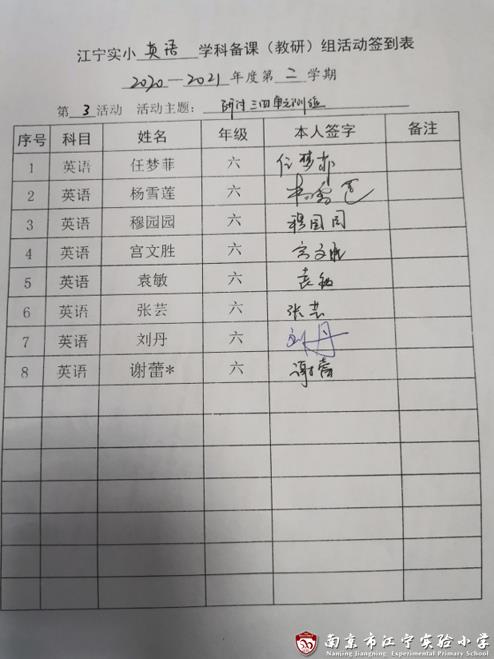 江宁实小 英语 学科备课（教研）组活动签到表
2020—2021年度第 二 学期
第 3 活动 活动主题： 研讨三四单元测验
序号 科目 姓名 年级 本人签字 备注
1 英语 任梦菲 六 任梦菲
2 英语 杨雪莲 六
3 英语 穆园园 六 穆园园
4 英语 宫文胜 六 宫文胜
5 英语 袁敏 六 袁敏
6 英语 张芸 六 张芸
7 英语 刘丹 六 刘丹
8 英语 谢蕾* 六 谢蕾
南京市江宁实验小学
Nanjing Jiangning Experimental Primary School